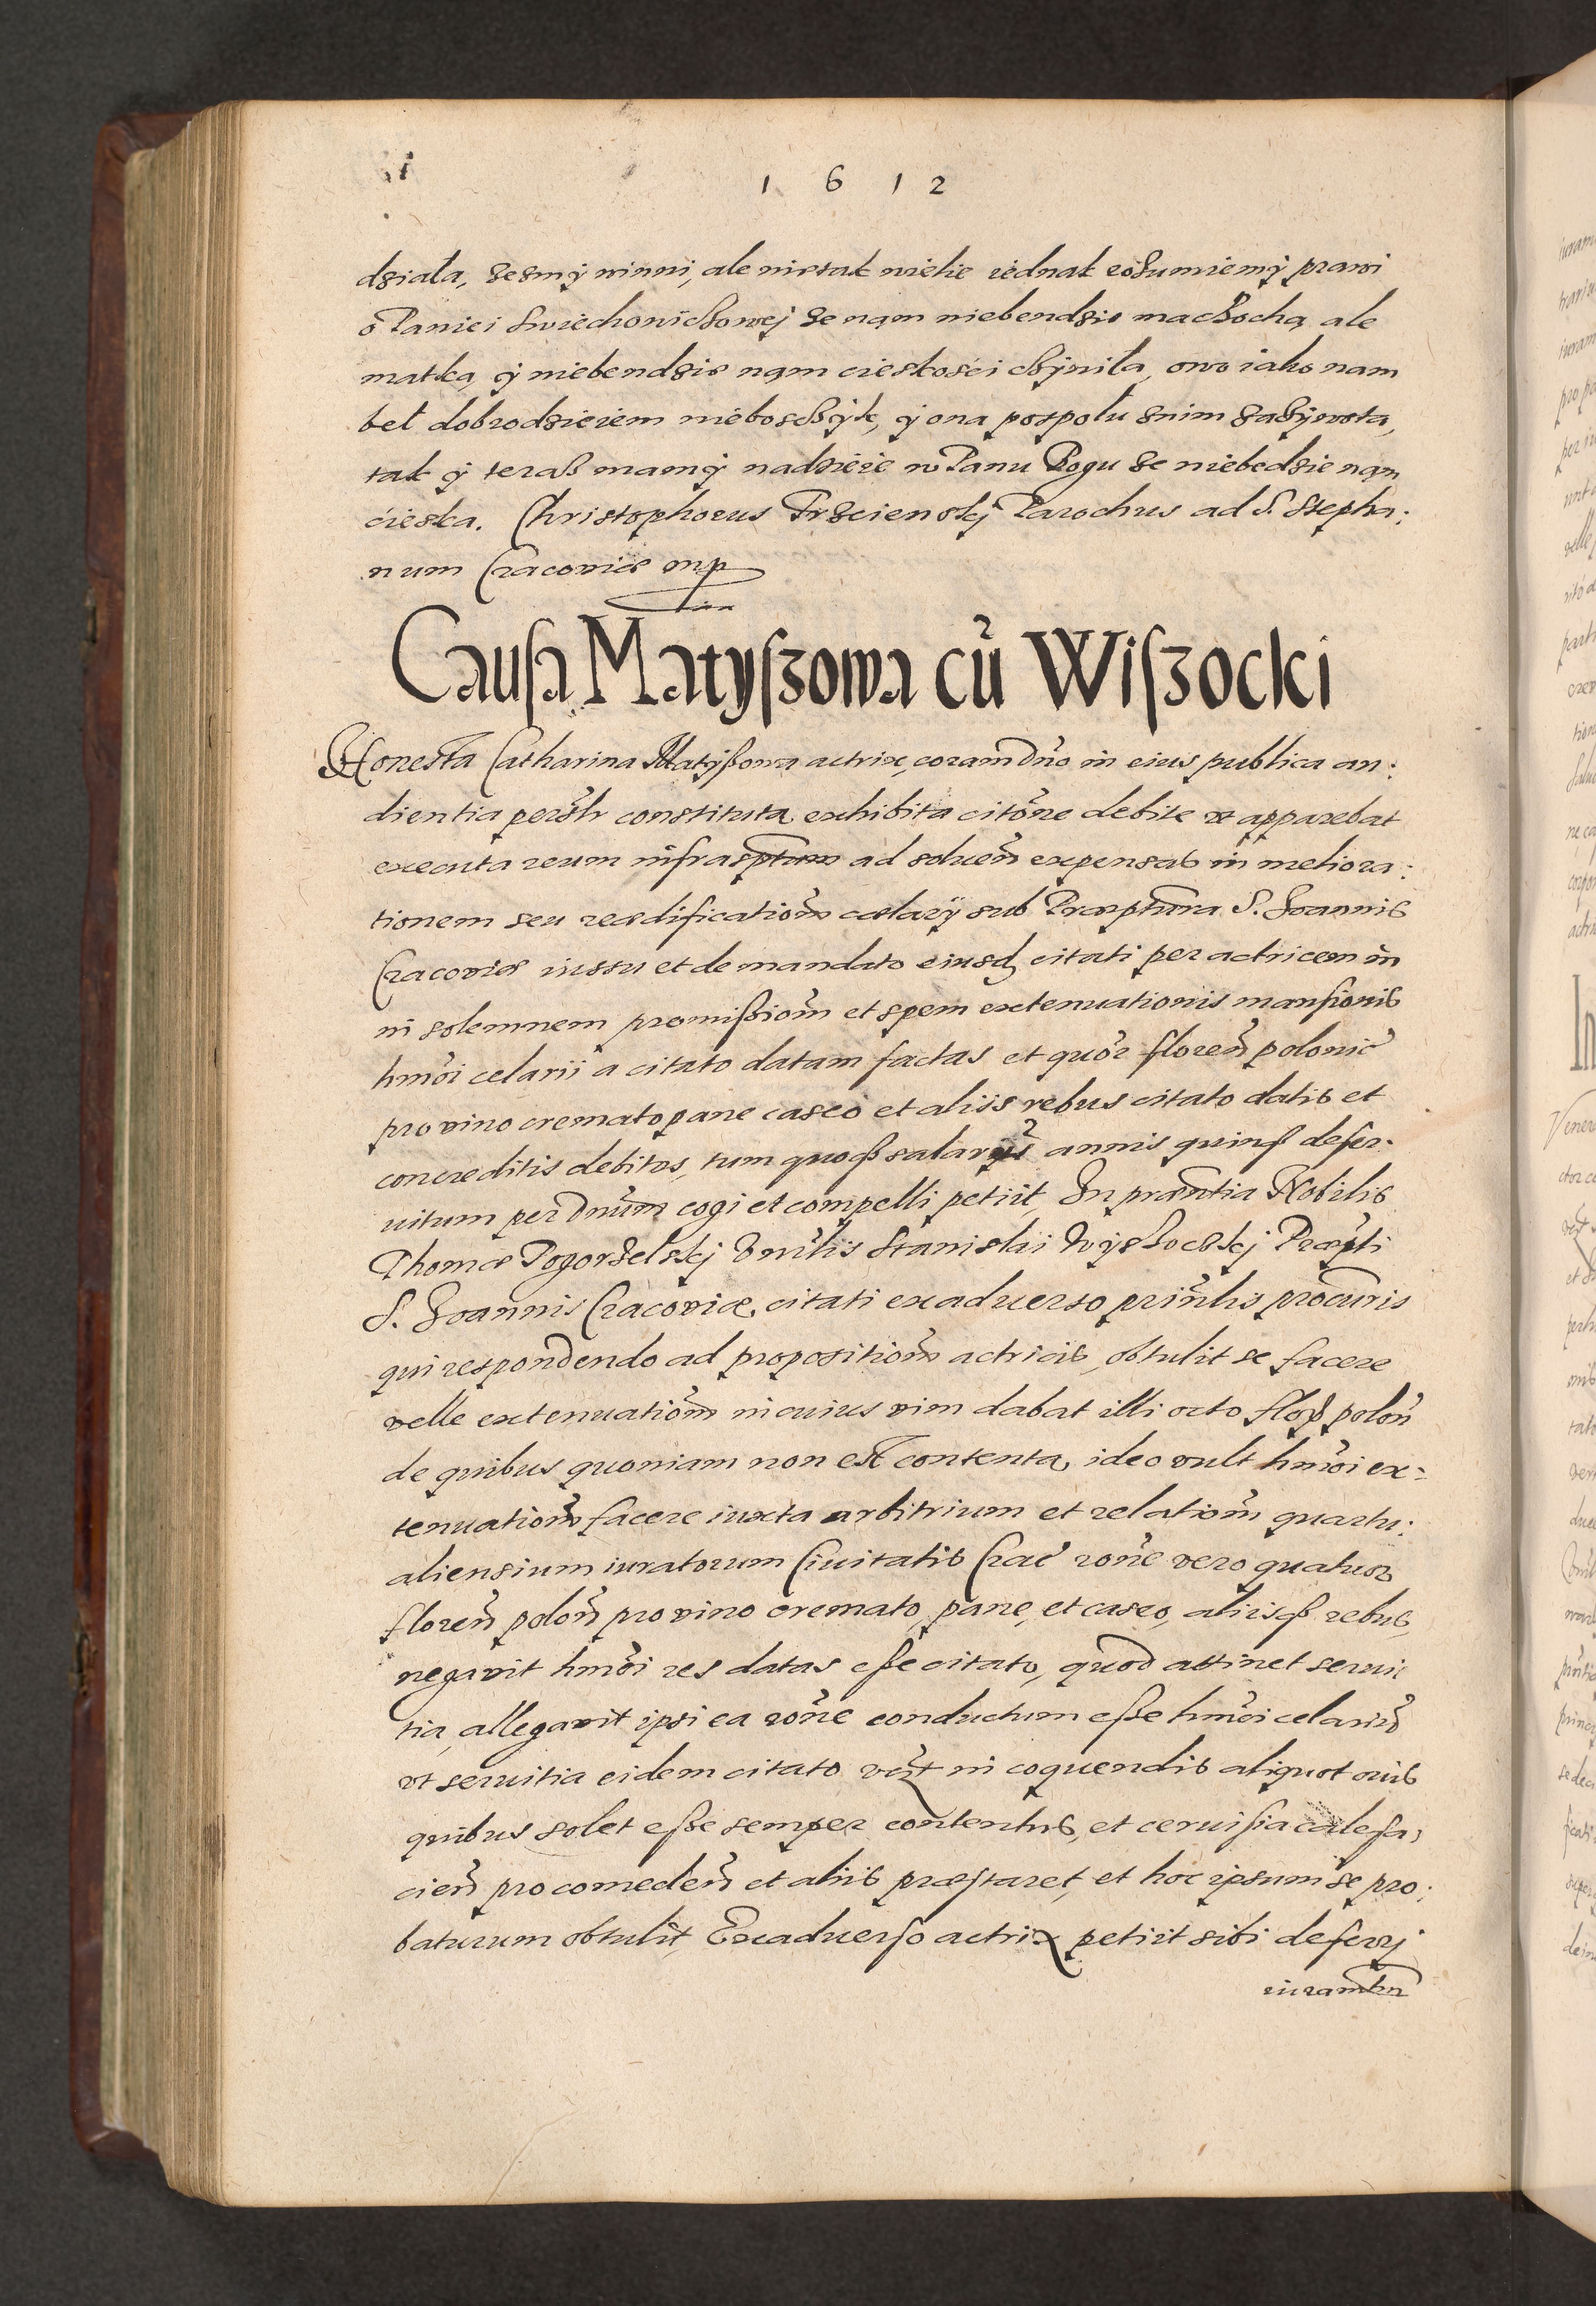 1 6 1 2
działa, żesmÿ winni, ale nie tak wielie iednak rozumiemÿ prawi
o Paniei Swiechowiczowej że nąm niebendzie macochą ale
matką, ÿ niebendzie nąm cięskości czÿniła, owo iako nam
beł dobrodzieiem nieboszczÿk, ÿ ona pospołu snim zażÿwota,
tak ÿ teraß mamÿ nadzieie w Panu Bogu że niebędzie nąm
cięska. Christophorus Trzcienskj Parochus ad S. Stepha:
num Cracoviæ mp
Causa Matyſzowa cũ Wiſzocki
Honesta Catharina Matÿßowa actrix, coram Dño in eius publica au:
dientia persõlr constituta exhibita citõne debite vt apparebat
executa reum infrasptum ad soluen̄ expensas in meliora:
tionem seu reædificationẽ cælarÿ sub Præptura S. Joannis
Cracoviæ iussu et de mandato eiusdꝫ citati per actricem in
ni solemnem promißionẽ et spem extenuationis mansionis
hmõi celarii a citato datam factas et quõr floren̄ polonic̃
pro vino cremato pane caseo et aliis rebus citato datis et
concreditis debitos, tum quoqꝫ salariũ annis quinqꝫ deser:
uitum per Dnum cogi et compelli petiit, In præntia Nobilis
Thomæ Pogorzelskj Dnĩlis Stanislai Wysockj Præpti
S. Joannis Cracoviæ citati exaduerso prin̄lis procuris
qui respondendo ad propositionẽ actricis, obtulit se facere
velle extenuationẽ in cuius vim dabat illi octo flor polon̄
de quibus quoniam non est contenta, ideo vult hmõi ex:
tenuationẽ facere iuxta arbitrium et relationẽ quartu:
aliensium iuratorum Ciuitatis Crac̃ rõne vero quatuor
floren̄ polon̄ pro vino cremato, pane, et caseo, aliisqꝫ rebus,
negavit hmõi res datas eße citato, quod attinet serui
tia, allegavit ipsi ea rõne conductum eße hmõi celariũ
vt seruitia eidem citato vt̃ in coquendis aliquot ouis
quibus solet eße semper contentus, et ceruisia calefa:
cien̄ pro comeden̄ et aliis præstaret, et hoc ipsum se pro:
baturum obtulit, Exaduerso actrix petiit sibi deferrj
iuramen